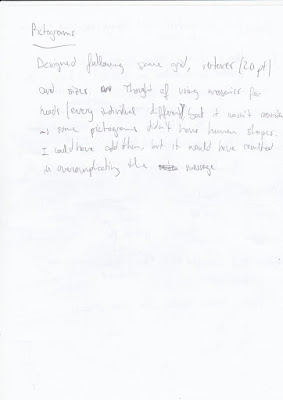 Pictograms
Designed following same grid, (20 pt)
and sizes. Thought of using mosaics for
heads (every individual different) but it wasn't
as some pictograms didn't have human shapes.
I could have add them, but it would have resulted
in overcomplicating the message